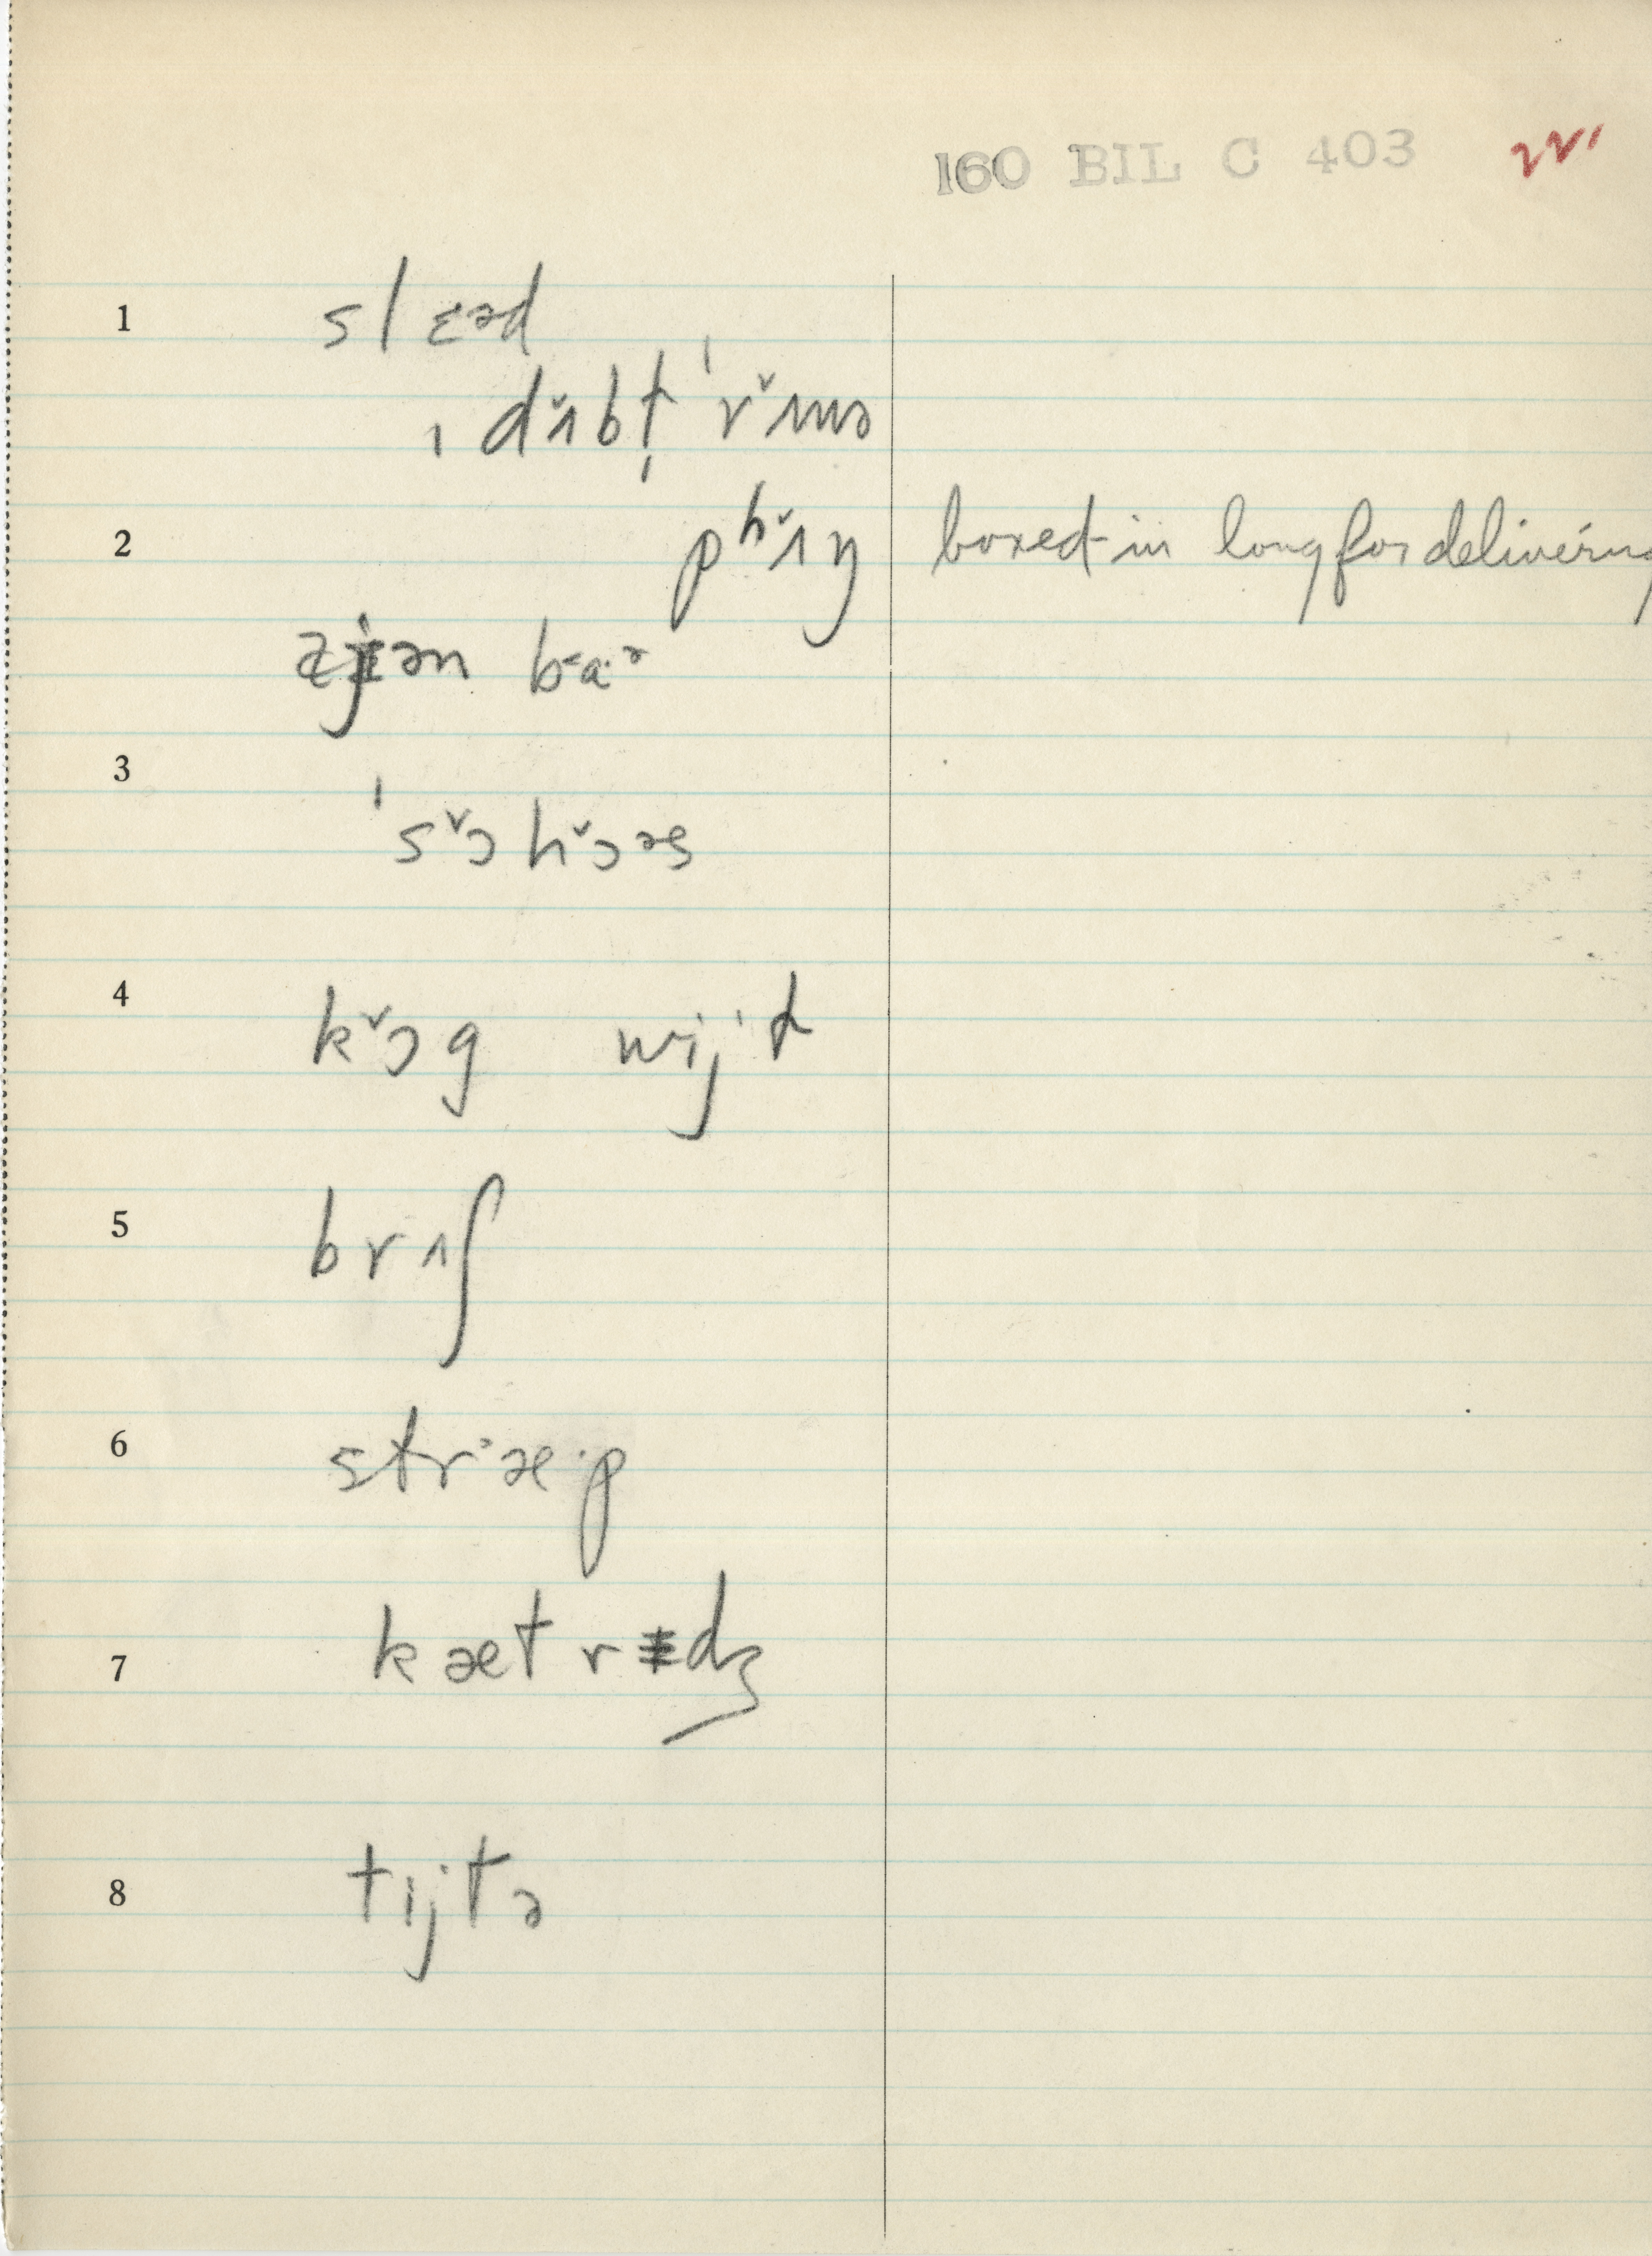 160 BIL C 403
1 slɛəd
ˌdʌ̌bt̩ ˈrʌ̌nə
2 pʰʌ̌ŋ boxed-in long for delivering
ɑjən bɑ˞ə
3 ˈsɔ̌hɔ̌əs
4 kɔ̌g wij·d
5 brʌʃ
6 stræ·p
7 kætrɪdʒ
8 tijtə